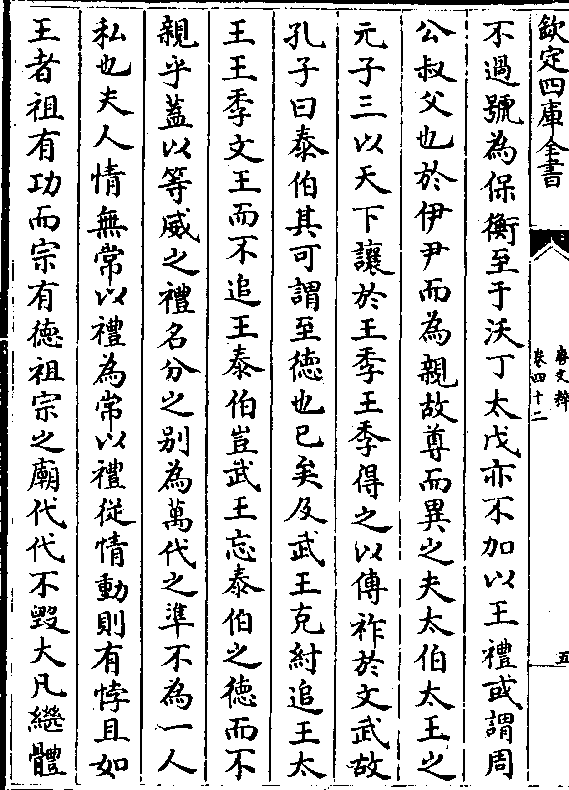 欽定四庫全書
唐文粹
卷四十二
五
不過號為保衡至于沃丁太戊亦不加以王禮或謂周
公叔父也於伊尹而為親故尊而異之夫太伯太王之
元子三以天下讓於王季王季得之以傳祚於文武故
孔子曰泰伯其可謂至徳也已矣及武王克紂追王太
王王季文王而不追王泰伯豈武王忘泰伯之徳而不
親乎蓋以等威之禮名分之别為萬代之準不為一人
私也夫人情無常以禮為常以禮從情動則有悖且如
王者祖有功而宗有徳祖宗之廟代代不毀大凡繼體